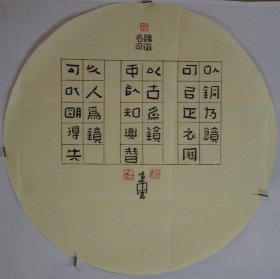 魏徵名句
以銅為鏡
可以正衣冠
以古為鏡
可以知興替
以人為鏡
可以明得失